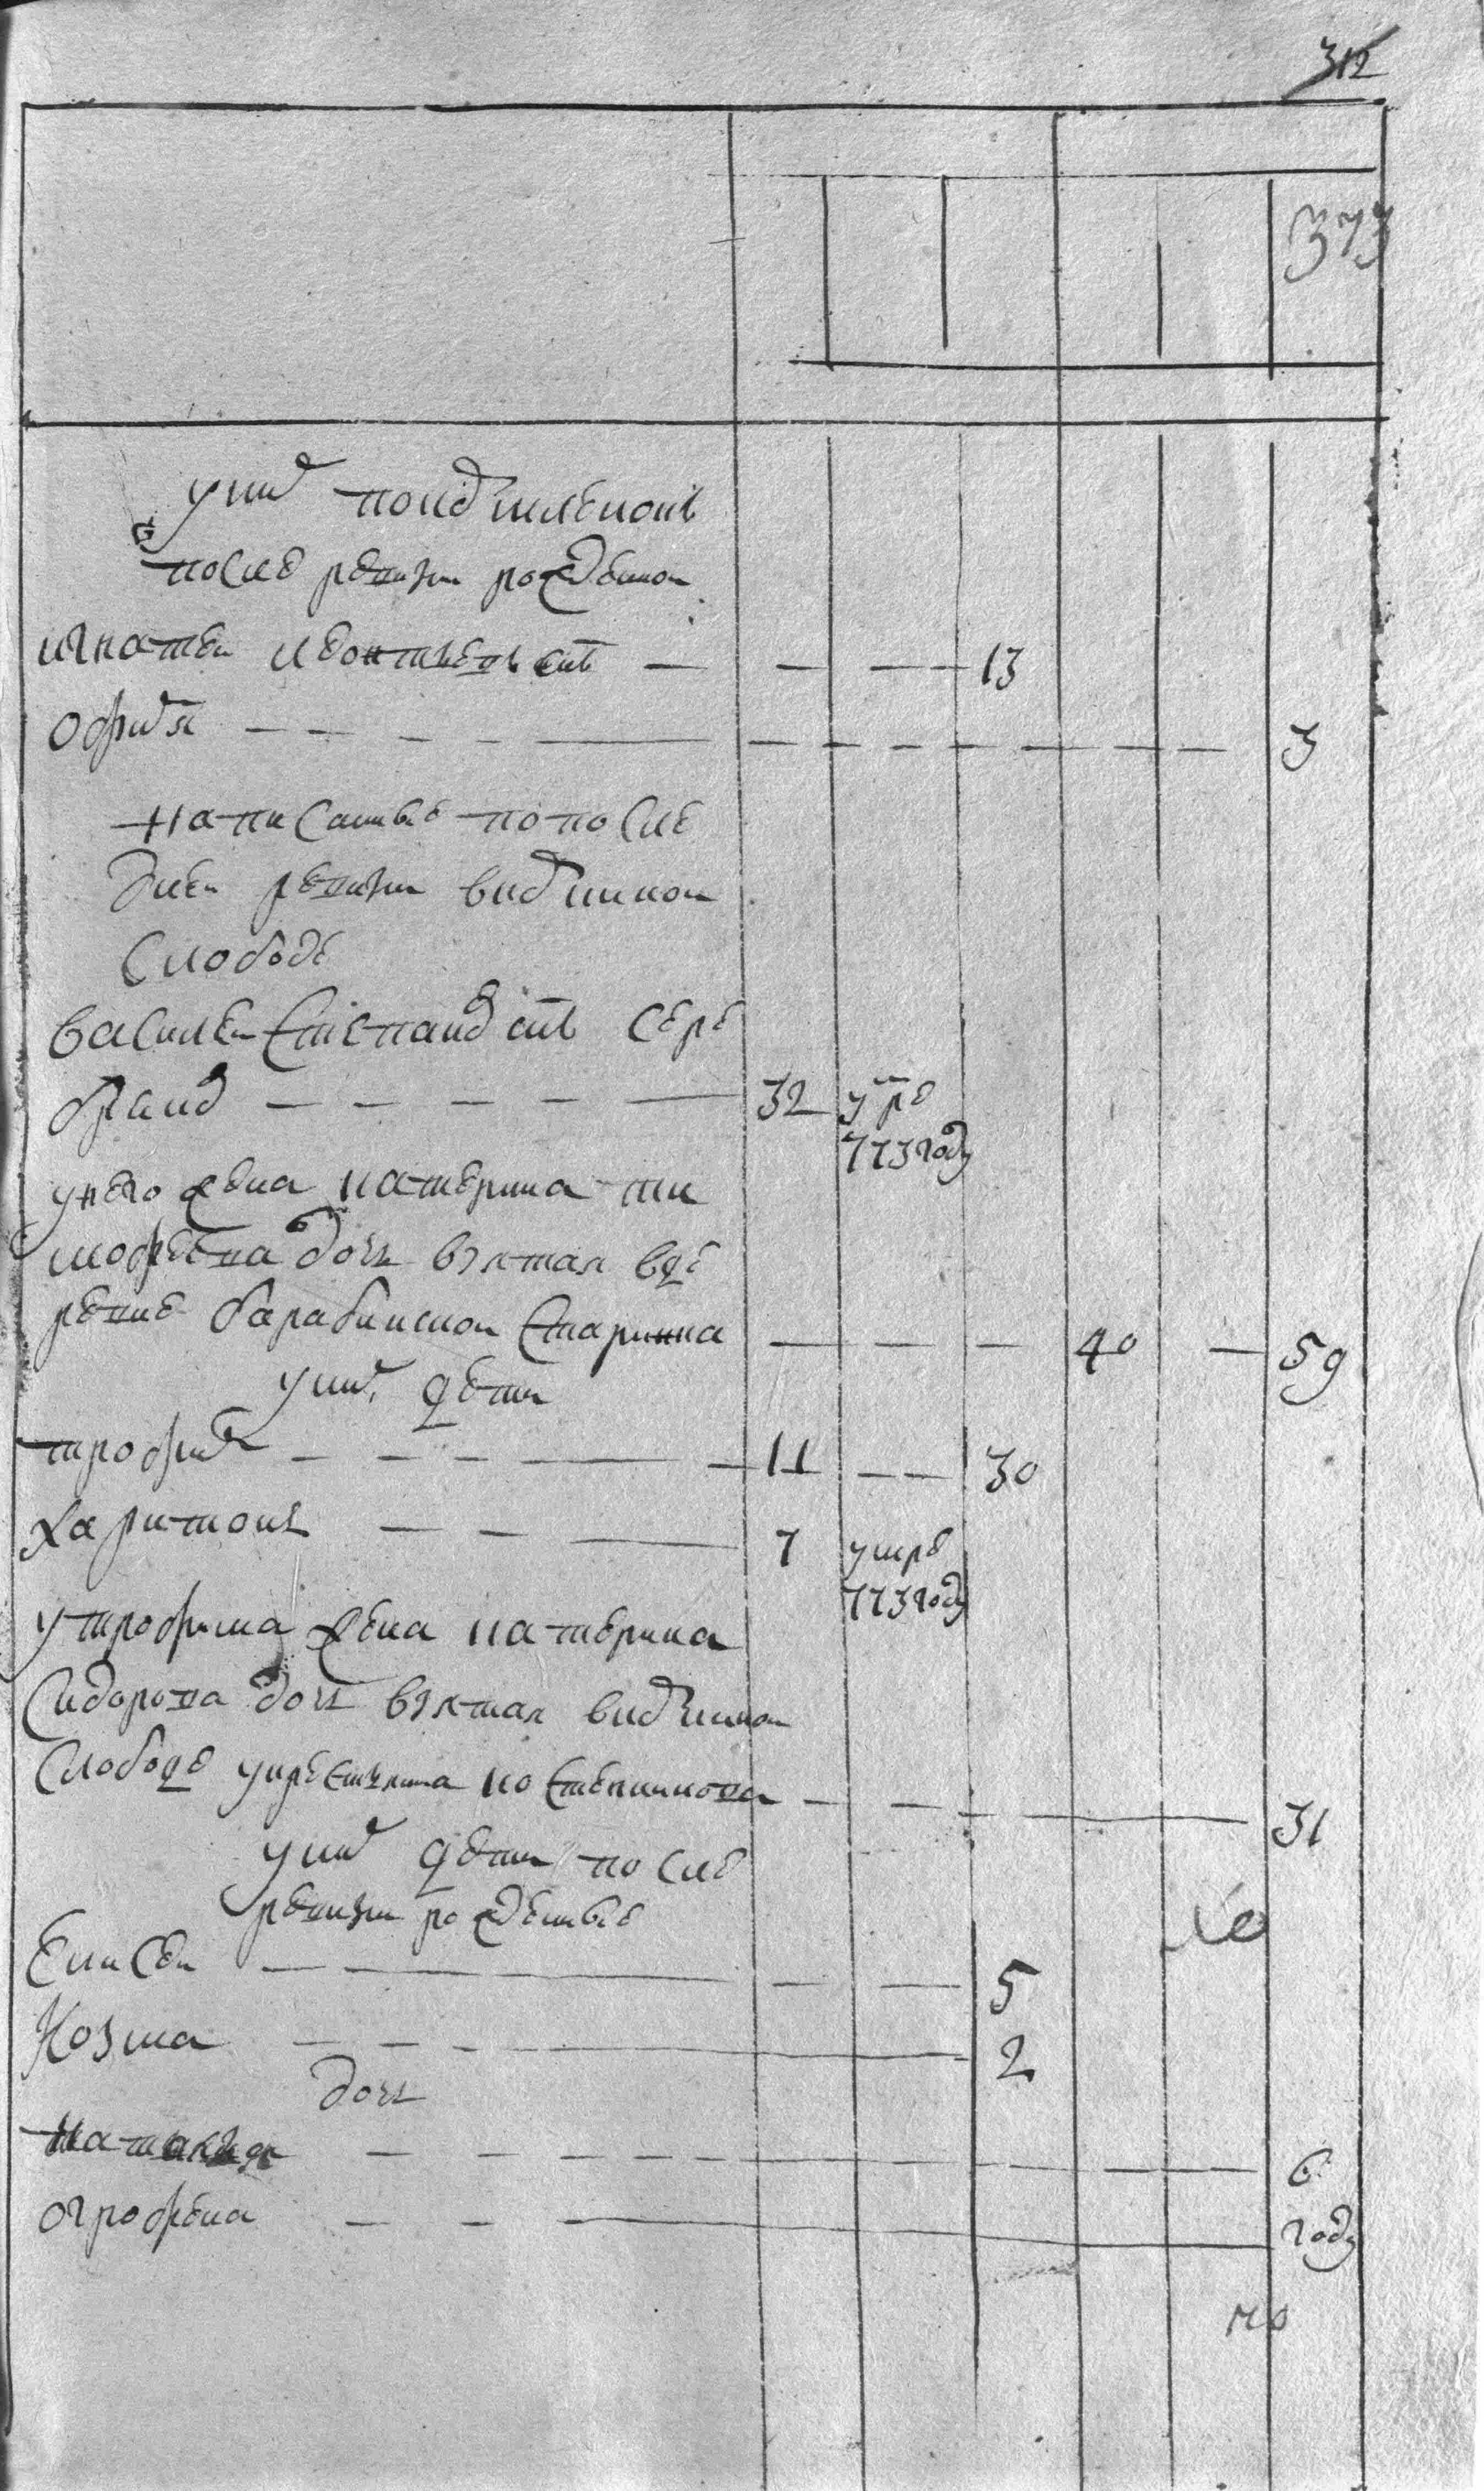 312
373
у них
после ревизи рожденои
игнатеи леонтьевъ снъ — — — 13
офимя — — — 3
написанные по после
днеи ревизи
слободе
василеи степановъ снъ сере
бряков — — — 32 умре
773 году
у него жена катерина ти
мофеева дочь взятая в де
ревне барабинскои старинна — — — 40 — 59
у них дети
трофимъ — — — 11 — — 30
харитонъ — — — 7 умре
773 году
у трофима жена катерина
сидорова дочь взятая
слободе у крестьянина костентинова — — — 31
у них дети после
ревизи рожденные
елисеи — — — 5
козма — — — 2
дочь
наталья — — — 6
огрофена — — — году